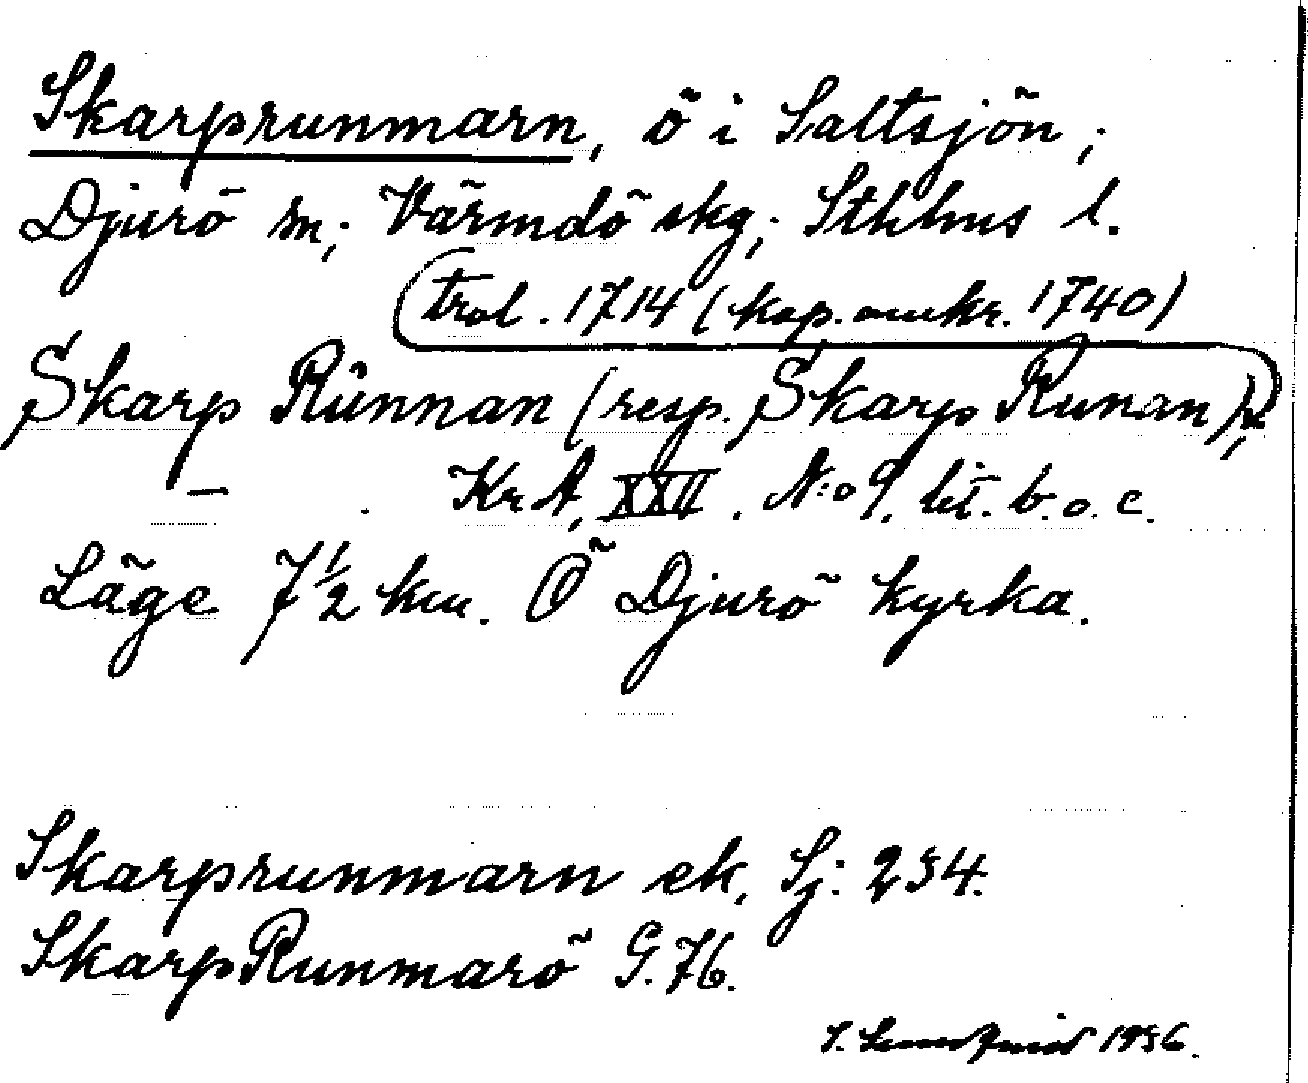 Skarprunmarn, ö i Saltsjön;
Djurö sn; Värmdö skg; Sthlms l.
trol. 1714 (kop. omkr. 1740)
Skarp Rünnan (resp. Skarp Runan),
— KrA, XXII. N:o 9. lit. b. o. c.
Läge 7 1/2 km. Ö Djurö kyrka.
Skarprunmarn ek. Sj: 234.
Skarp Runmarö G. 76.
1936.